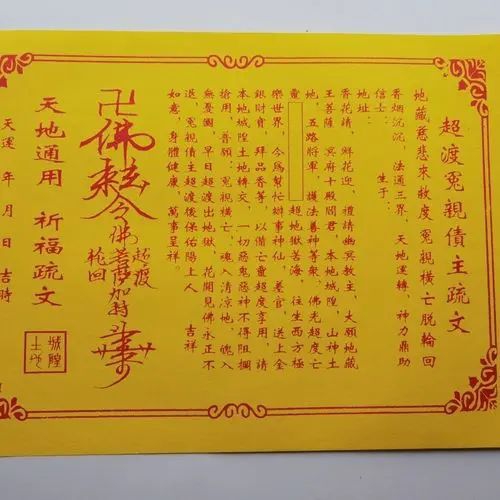 超渡冤親債主疏文
地藏慈悲來救度 冤親橫亡脫輪回
香烟沉沉，法通三界，天地運轉，神力鼎助
信士： 生于：
地址：
香花請，鮮花迎，禮請幽冥教主，大願地藏
王菩薩，冥府十殿閻君，本地城隍，山神土
地，五路將軍，護法善神等衆，佛光超度亡
靈 超地獄苦海，往生西方極
樂世界，今爲幫忙辦事神仙，善官，送上金
銀財寶，拜品香等，以備亡靈超度享用，請
本地城隍土地轉交，一切惡鬼惡神不得阻攔
搶用，普願：冤視橫亡，魂入清凉地，魄入
無憂園，早日超渡出地獄，花開見佛永正不
退，冤親債主超渡後保佑陽上人，吉祥
如意，身體健康，萬事呈祥。
卍佛敕令佛菩薩加持
超渡
輪回
天地通用 祈福疏文
城隍
土地
天運 年 月 日 吉時